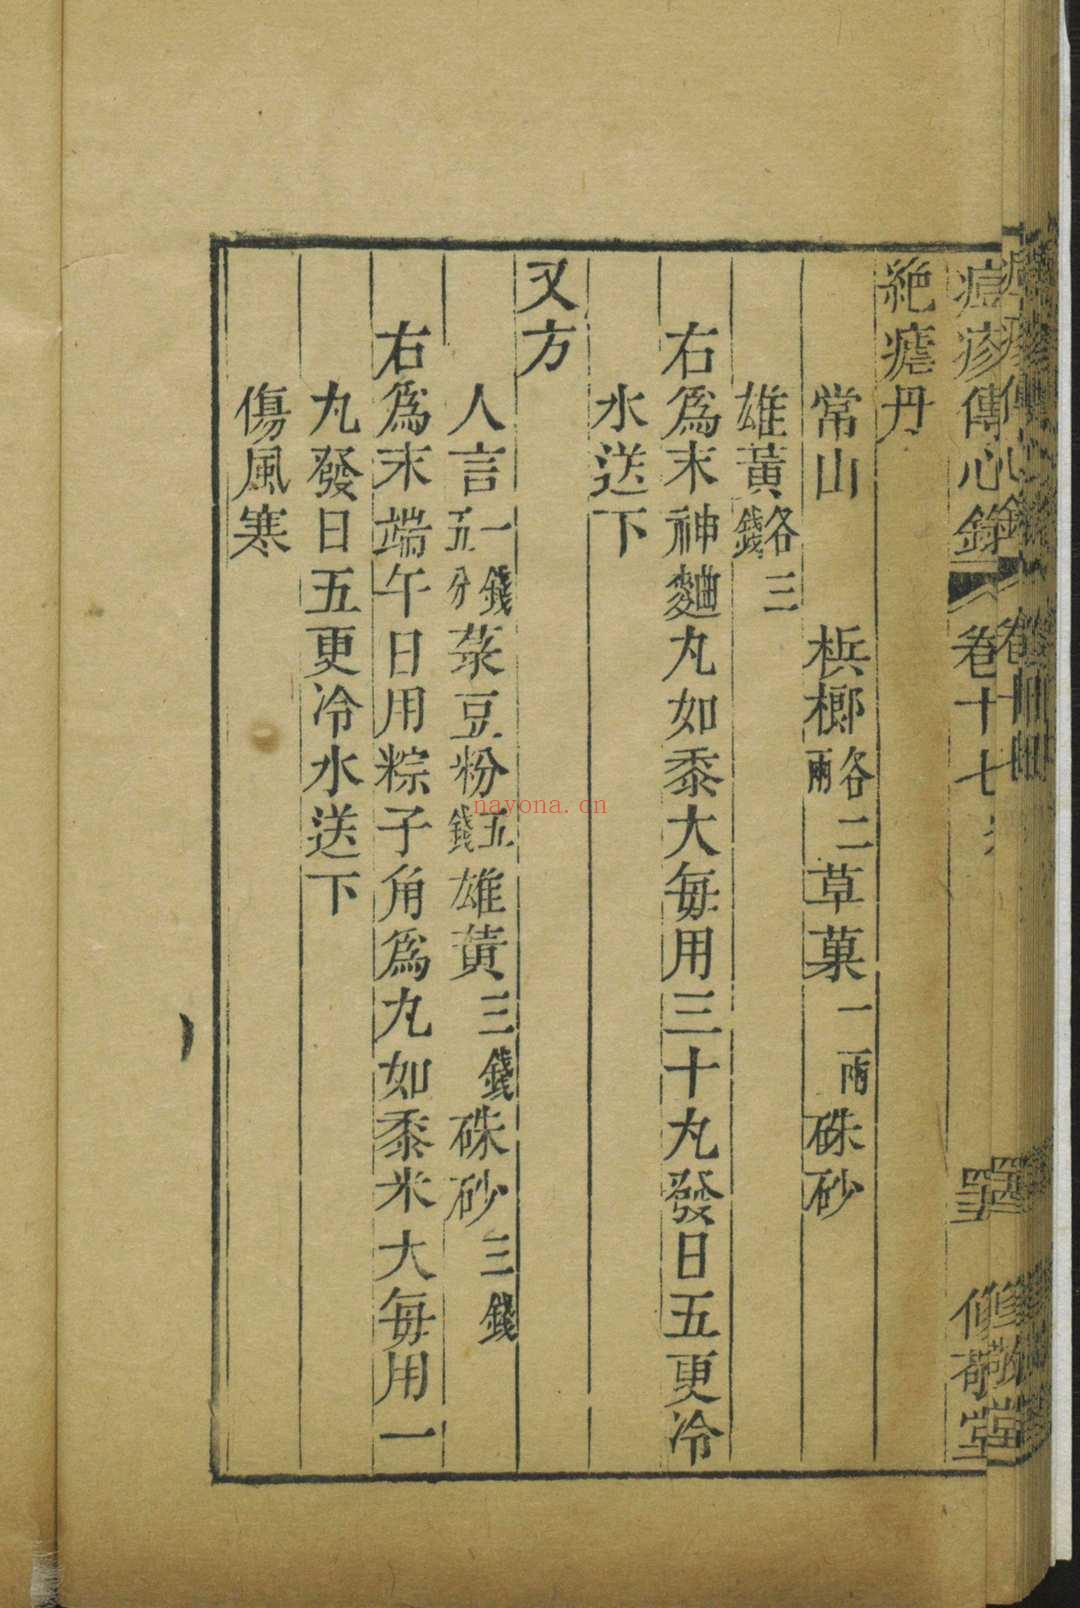 痘疹傳心錄 卷十七
修敬堂
絶瘧丹
常山 梹榔各二兩草菓一兩硃砂
雄黃各三錢
右爲末神麯丸如黍大每用三十丸發日五更冷
水送下
又方
人言一錢五分菉豆粉五錢雄黃三錢硃砂三錢
右爲末端午日用粽子角爲丸如黍米大每用一
丸發日五更冷水送下
傷風寒
nayona.cn